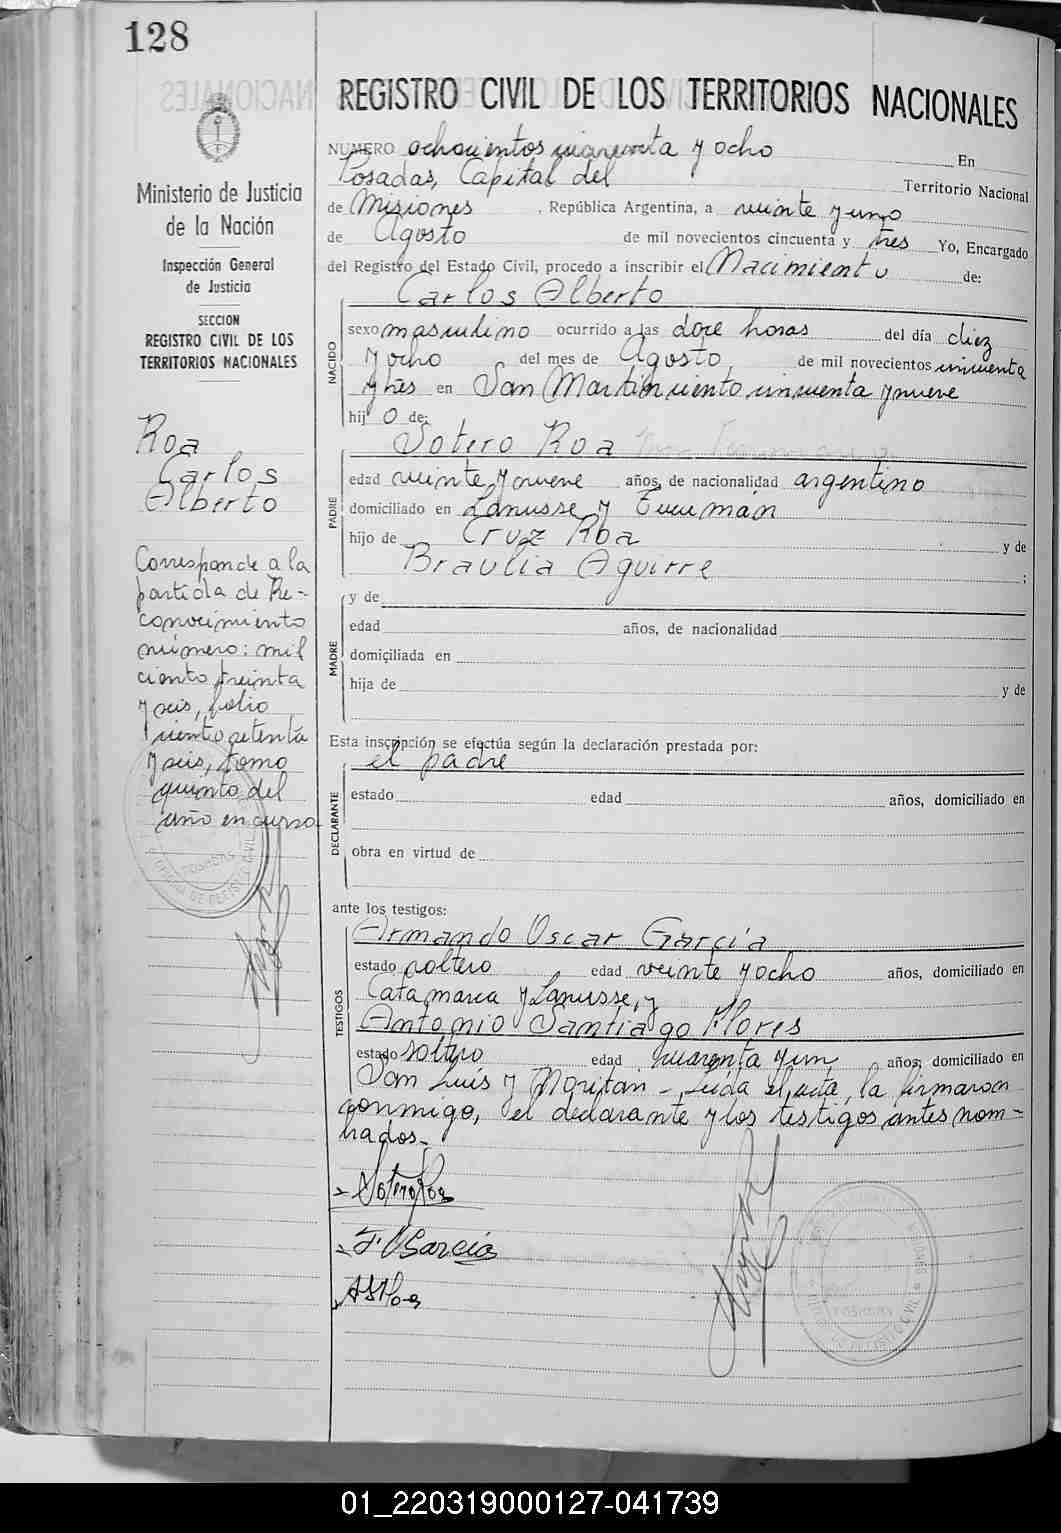 128
REGISTRO CIVIL DE LOS TERRITORIOS NACIONALES
Ministerio de Justicia
de la Nación
Inspección General
de Justicia
SECCION
REGISTRO CIVIL DE LOS
TERRITORIOS NACIONALES
Roa
Carlos
Alberto
Corresponde a la
partida de Re-
conocimiento
número: mil
ciento treinta
y seis, folio
ciento setenta
y seis, tomo
quinto del
año en curso
NUMERO ochocientos cuarenta y ocho En
Posadas, Capital del Territorio Nacional
de Misiones , República Argentina, a veinte y uno
de Agosto de mil novecientos cincuenta y tres Yo, Encargado
del Registro del Estado Civil, procedo a inscribir el Nacimiento de:
NACIDO
Carlos Alberto
sexo masculino ocurrido a las doce horas del día diez
y ocho del mes de Agosto de mil novecientos cincuenta
y tres en San Martín ciento cincuenta y nueve
hij o de:
PADRE
Sotero Roa
edad veinte y nueve años, de nacionalidad argentino
domiciliado en Lanusse y Tucumán
hijo de Cruz Roa y de
Braulia Aguirre ;
MADRE
y de
edad años, de nacionalidad
domiciliada en
hija de y de
Esta inscripción se efectúa según la declaración prestada por:
DECLARANTE
el padre
estado edad años, domiciliado en
obra en virtud de
ante los testigos:
TESTIGOS
Armando Oscar García
estado soltero edad veinte y ocho años, domiciliado en
Catamarca y Lanusse, y
Antonio Santiago Flores
estado soltero edad cuarenta y un años, domiciliado en
San Luis y Moritan - Leída el acta, la firmaron
conmigo, el declarante y los testigos antes nom-
brados.-
Sotero Roa
García
POSADAS
01_220319000127-041739